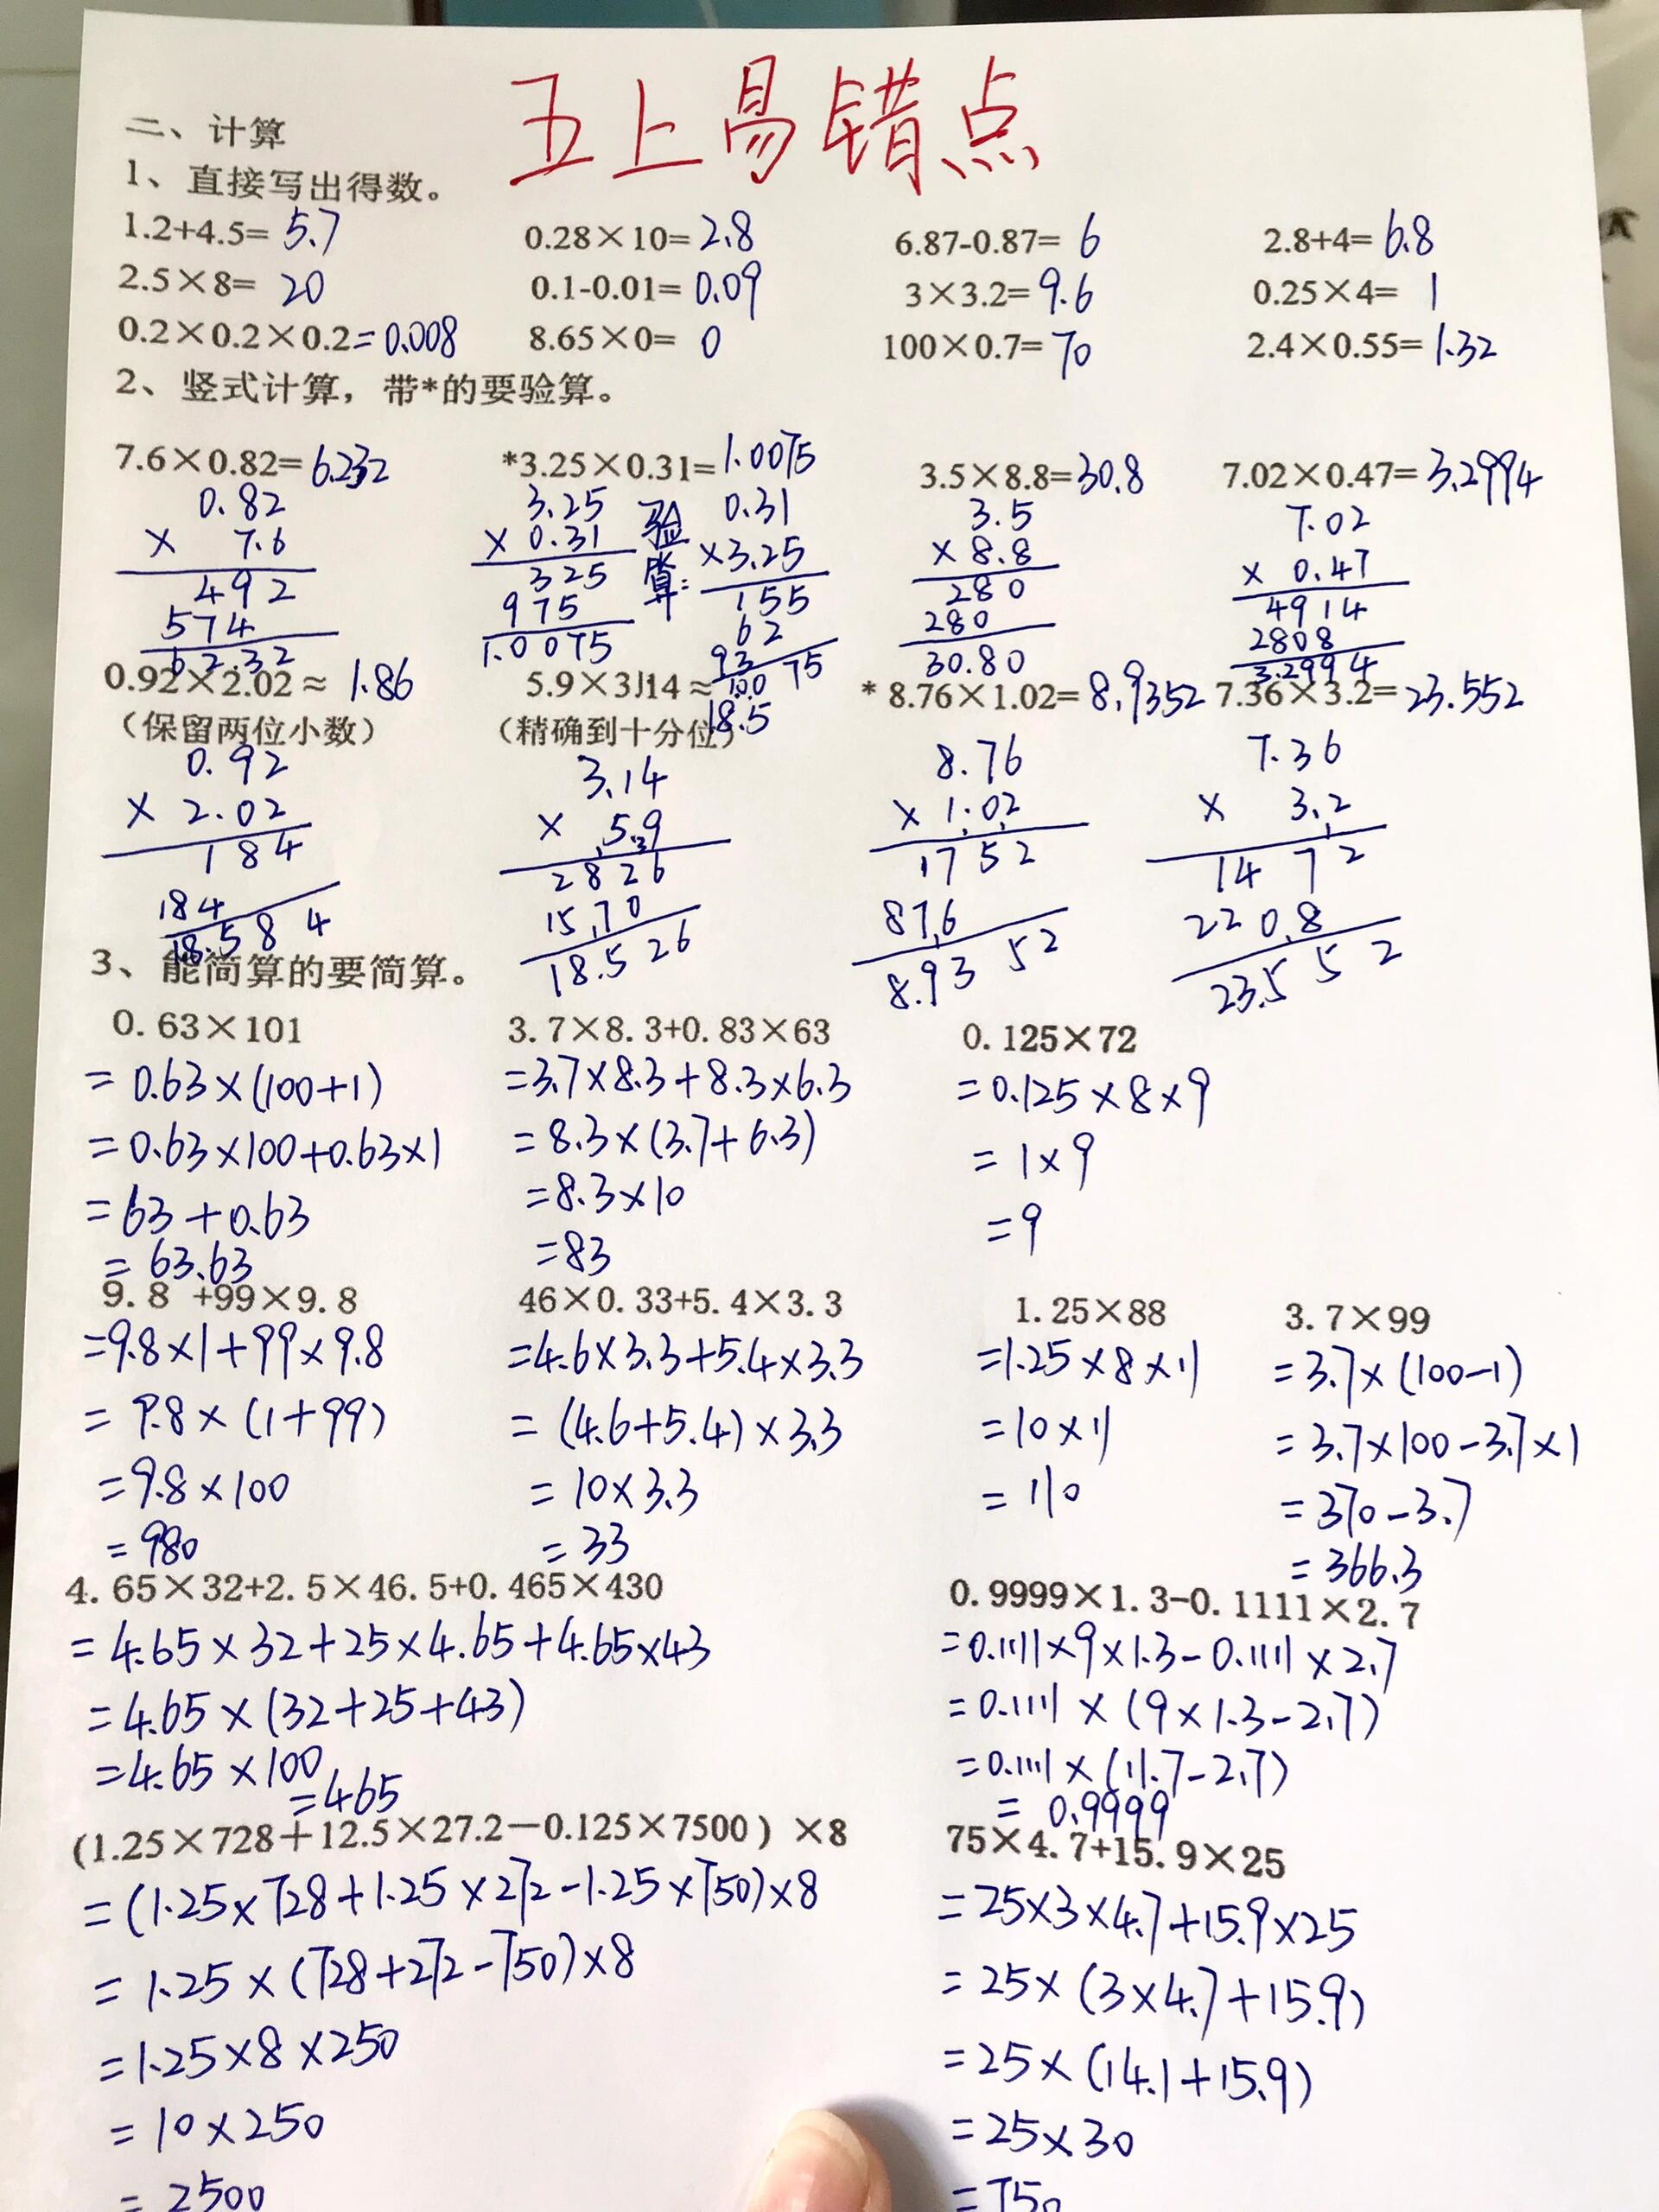 五上易错点
二、计算
1、直接写出得数。
1.2+4.5= 5.7 0.28×10= 2.8 6.87-0.87= 6 2.8+4= 6.8
2.5×8= 20 0.1-0.01= 0.09 3×3.2= 9.6 0.25×4= 1
0.2×0.2×0.2=0.008 8.65×0= 0 100×0.7= 70 2.4×0.55= 1.32
2、竖式计算，带*的要验算。
7.6×0.82= 6.232 *3.25×0.31= 1.0075 3.5×8.8= 30.8 7.02×0.47= 3.2994
0.82 3.25 验算: 0.31 3.5 7.02
× 7.6 × 0.31 ×3.25 × 8.8 × 0.47
492 325 155 280 4914
574 975 62 280 2808
62.32 1.0075 93 30.80 3.2994
1.0075
0.92×2.02≈ 1.86 5.9×3.14≈ 18.5 *8.76×1.02= 8.9352 7.36×3.2= 23.552
（保留两位小数） （精确到十分位）
0.92 3.14 8.76 7.36
× 2.02 × 5.9 × 1.02 × 3.2
184 2826 1752 1472
184 15.70 876 2208
18.584 18.526 8.9352 23.552
3、能简算的要简算。
0.63×101 3.7×8.3+0.83×63 0.125×72
=0.63×(100+1) =3.7×8.3+8.3×6.3 =0.125×8×9
=0.63×100+0.63×1 =8.3×(3.7+6.3) =1×9
=63+0.63 =8.3×10 =9
=63.63 =83
9.8 +99×9.8 46×0.33+5.4×3.3 1.25×88 3.7×99
=9.8×1+99×9.8 =4.6×3.3+5.4×3.3 =1.25×8×11 =3.7×(100-1)
=9.8×(1+99) =(4.6+5.4)×3.3 =10×11 =3.7×100-3.7×1
=9.8×100 =10×3.3 =110 =370-3.7
=980 =33 =366.3
4.65×32+2.5×46.5+0.465×430 0.9999×1.3-0.1111×2.7
=4.65×32+25×4.65+4.65×43 =0.1111×9×1.3-0.1111×2.7
=4.65×(32+25+43) =0.1111×(9×1.3-2.7)
=4.65×100 =0.1111×(11.7-2.7)
=465 =0.9999
(1.25×728＋12.5×27.2－0.125×7500）×8 75×4.7+15.9×25
=(1.25×728+1.25×272-1.25×750)×8 =25×3×4.7+15.9×25
=1.25×(728+272-750)×8 =25×(3×4.7+15.9)
=1.25×8×250 =25×(14.1+15.9)
=10×250 =25×30
=2500 =750